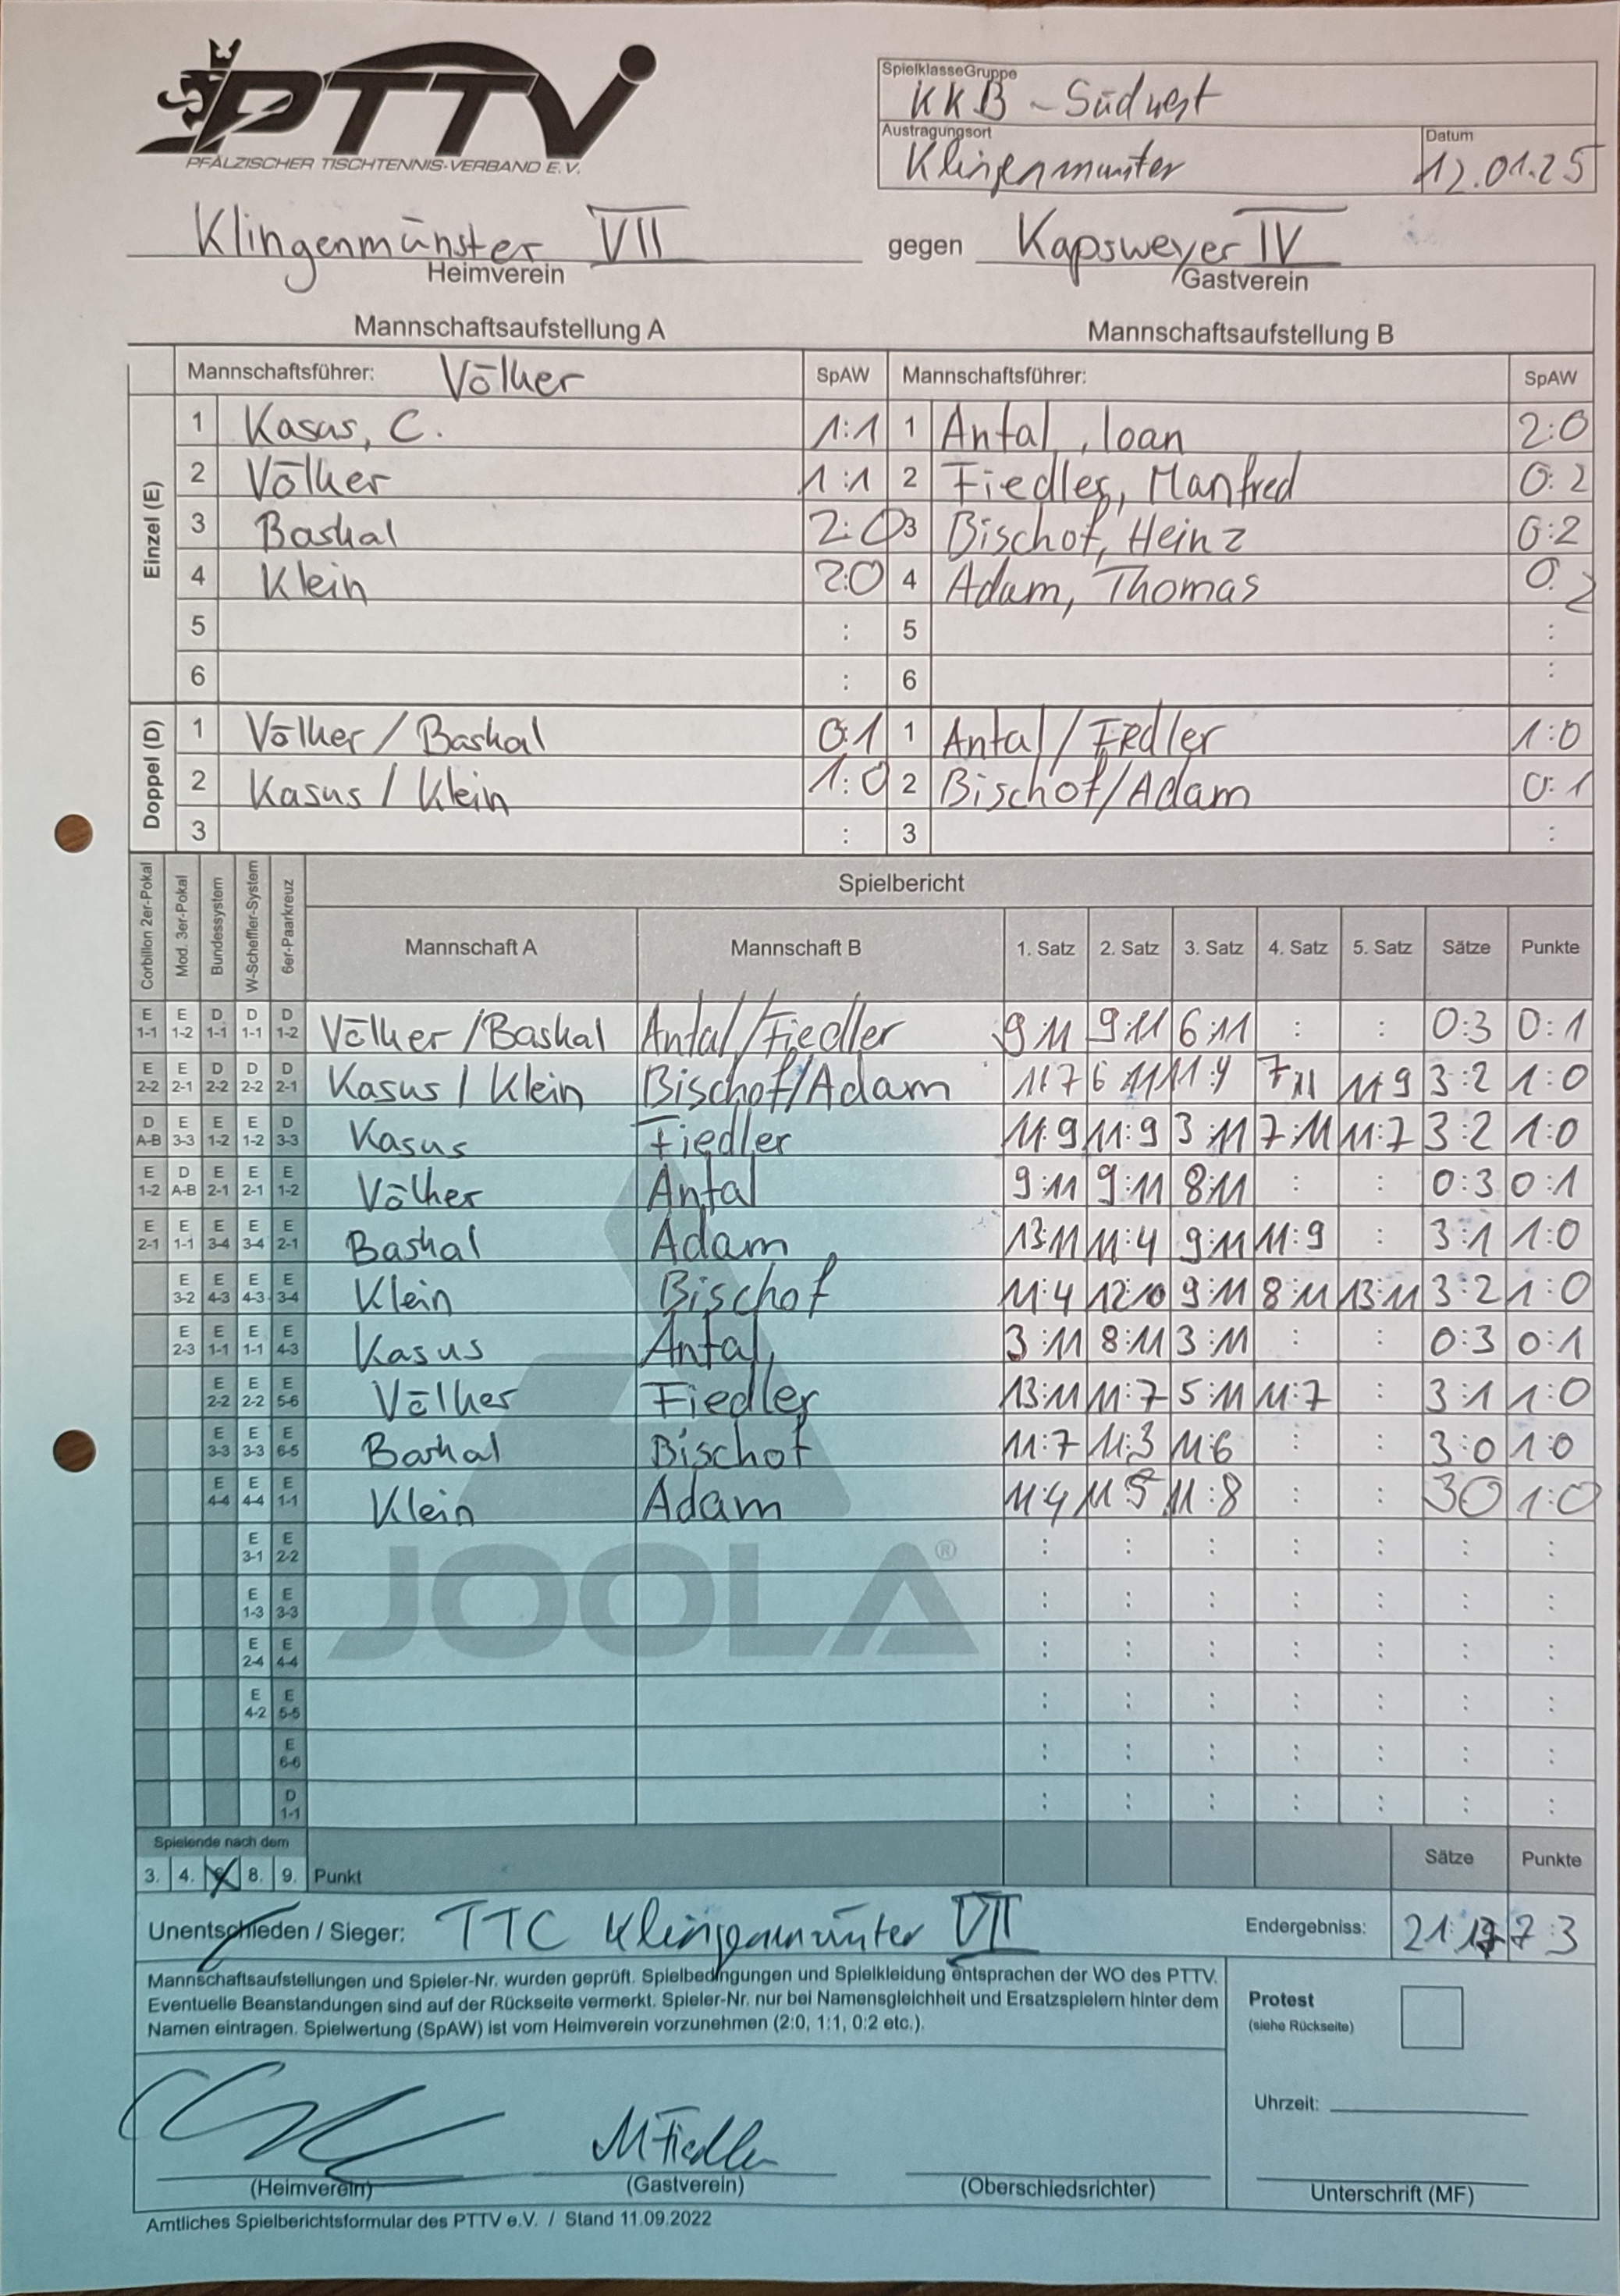 PTTV
PFÄLZISCHER TISCHTENNIS-VERBAND E.V.
SpielklasseGruppe
KKB - Südwest
Austragungsort
Klingenmünster
Datum
12.01.25
Klingenmünster VII gegen Kapsweyer IV
Heimverein Gastverein
Mannschaftsaufstellung A Mannschaftsaufstellung B
Mannschaftsführer: Völker SpAW Mannschaftsführer: SpAW
Einzel (E)
1 Kasus, C. 1:1 1 Antal, Ioan 2:0
2 Völker 1:1 2 Fiedler, Manfred 0:2
3 Baskal 2:0 3 Bischof, Heinz 0:2
4 Klein 2:0 4 Adam, Thomas 0:2
5 : 5 :
6 : 6 :
Doppel (D)
1 Völker / Baskal 0:1 1 Antal / Fiedler 1:0
2 Kasus / Klein 1:0 2 Bischof/Adam 0:1
3 : 3 :
Corbillon 2er-Pokal Mod. 3er-Pokal Bundessystem W-Scheffler-System 6er-Paarkreuz
Spielbericht
Mannschaft A Mannschaft B 1. Satz 2. Satz 3. Satz 4. Satz 5. Satz Sätze Punkte
E 1-1 E 1-2 D 1-1 D 1-1 D 1-2 Völker/Baskal Antal/Fiedler 9:11 9:11 6:11 : : 0:3 0:1
E 2-2 E 2-1 D 2-2 D 2-2 D 2-1 Kasus / Klein Bischof/Adam 11:7 6 11 11:9 7:11 11:9 3:2 1:0
D A-B E 3-3 E 1-2 E 1-2 D 3-3 Kasus Fiedler 11:9 11:9 3:11 7:11 11:7 3:2 1:0
E 1-2 D A-B E 2-1 E 2-1 E 1-2 Völker Antal 9:11 9:11 8:11 : : 0:3 0:1
E 2-1 E 1-1 E 3-4 E 3-4 E 2-1 Baskal Adam 13:11 11:4 9:11 11:9 : 3:1 1:0
E 3-2 E 4-3 E 4-3 E 3-4 Klein Bischof 11:4 12:10 9:11 8:11 13:11 3:2 1:0
E 2-3 E 1-1 E 1-1 E 4-3 Kasus Antal 3:11 8:11 3:11 : : 0:3 0:1
E 2-2 E 2-2 E 5-6 Völker Fiedler 13:11 11:7 5:11 11:7 : 3:1 1:0
E 3-3 E 3-3 E 6-5 Baskal Bischof 11:7 11:3 11:6 : : 3:0 1:0
E 4-4 E 4-4 E 1-1 Klein Adam 11:4 11 5 11:8 : : 30 1:0
E 3-1 E 2-2 : : : : : : :
E 1-3 E 3-3 : : : : : : :
E 2-4 E 4-4 : : : : : : :
E 4-2 E 5-5 : : : : : : :
E 6-6 : : : : : : :
D 1-1 : : : : : : :
JOOLA®
Spielende nach dem
3. 4. 8. 9. Punkt Sätze Punkte
Unentschieden / Sieger: TTC Klingenmünster VII Endergebniss: 21:17 7:3
Mannschaftsaufstellungen und Spieler-Nr. wurden geprüft. Spielbedingungen und Spielkleidung entsprachen der WO des PTTV.
Eventuelle Beanstandungen sind auf der Rückseite vermerkt. Spieler-Nr. nur bei Namensgleichheit und Ersatzspielern hinter dem
Namen eintragen. Spielwertung (SpAW) ist vom Heimverein vorzunehmen (2:0, 1:1, 0:2 etc.).
Protest
(siehe Rückseite)
Uhrzeit:
M Fiedler
(Heimverein) (Gastverein) (Oberschiedsrichter) Unterschrift (MF)
Amtliches Spielberichtsformular des PTTV e.V. / Stand 11.09.2022